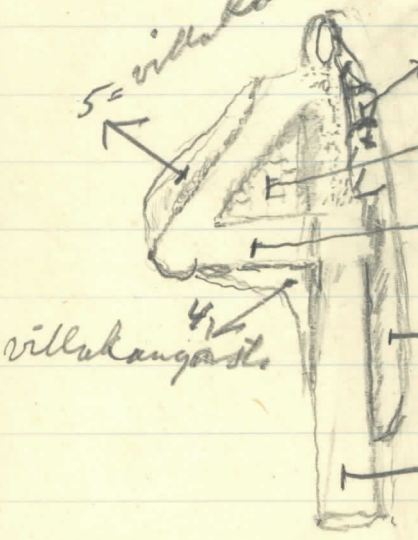 5= villaka
4,
villakangast.